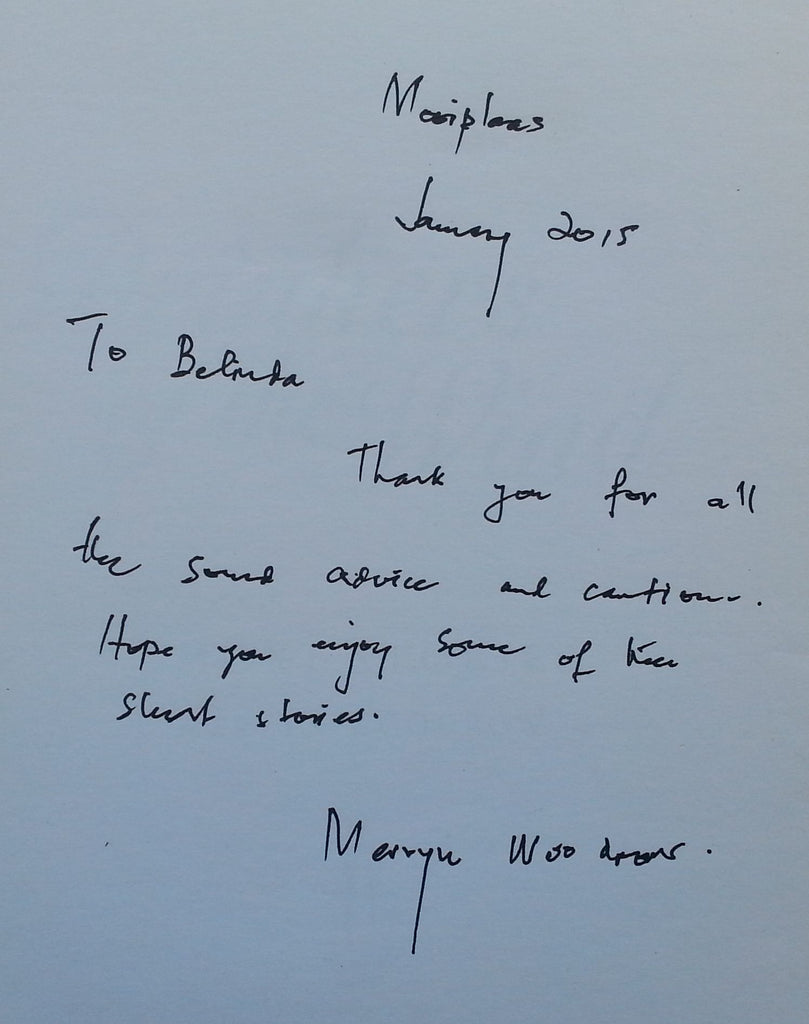 Mooiplaas
January 2015
To Belinda
Thank you for all
the sound advice and caution.
Hope you enjoy some of the
short stories.
Mervyn Woodrow.